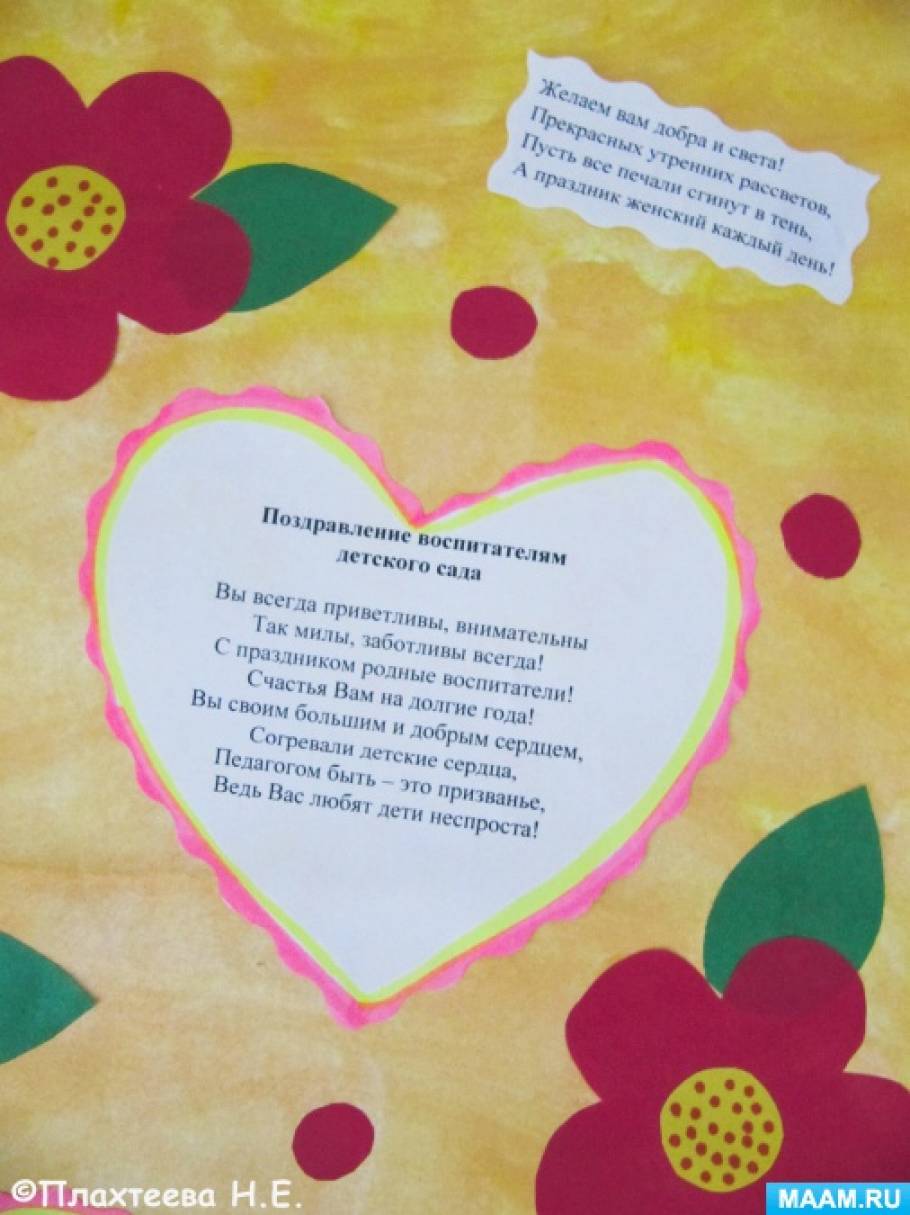 Желаем вам добра и света!
Прекрасных утренних рассветов,
Пусть все печали сгинут в тень,
А праздник женский каждый день!
Поздравление воспитателям
детского сада
Вы всегда приветливы, внимательны
Так милы, заботливы всегда!
С праздником родные воспитатели!
Счастья Вам на долгие года!
Вы своим большим и добрым сердцем,
Согревали детские сердца,
Педагогом быть – это призванье,
Ведь Вас любят дети неспроста!
©Плахтеева Н.Е.
MAAM.RU